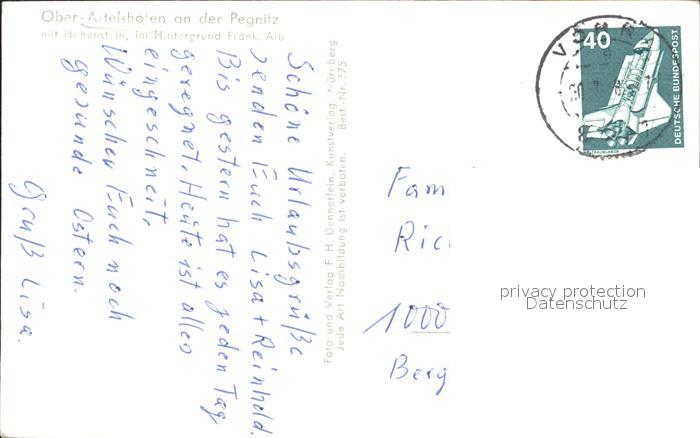 Ober-Artelshofen an der Pegnitz
mit Hohenstein, im Hintergrund Fränk. Alb
Schöne Urlaubsgrüße
senden Euch Lisa + Reinhold.
Bis gestern hat es jeden Tag
geregnet. Heute ist alles
eingeschneit,
Wünschen Euch noch
gesunde Ostern.
Gruß Lisa.
Foto und Verlag F. H. Dennerlein, Kunstverlag, Nürnberg
Jede Art Nachbildung ist verboten. Best.-Nr. 575
40
DEUTSCHE BUNDESPOST
Fam
Ric
1000
Berg
privacy protection
Datenschutz